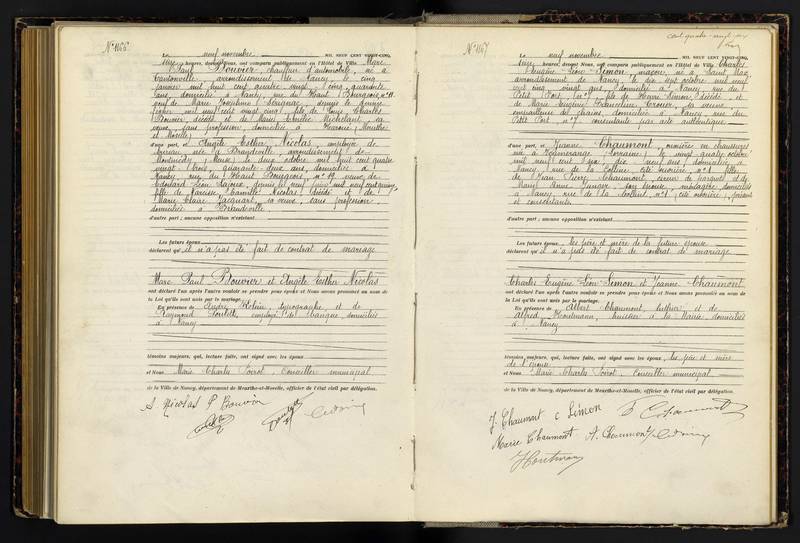 N° 1166
Le neuf novembre MIL NEUF CENT VINGT-CINQ,
seize heures, devant Nous, ont comparu publiquement en l'Hôtel de Ville Marc
Paul Bouvier, chauffeur d'automobile, né à
arrondissement de Nancy, le cinq
janvier mil huit cent quatre vingt cinq, quarante
ans, domicilié à Nancy, rue du Haut Bourgeois, n° 19
veuf de Marie Joséphine depuis le douze
février mil neuf cent vingt cinq, fils de Louis Charles
Bouvier, décédé, et de Marie Michelant, sa
veuve, sans profession, domiciliée à Xearoué, Meurthe
et Moselle
d'une part, et Angèle Esther Nicolas, employée de
bureau, née à Brandeville, arrondissement de
Montmédy, Meuse, le deux octobre mil huit cent quatre
vingt trois, quarante deux ans, domiciliée à
Nancy, rue du Haut Bourgeois, n° 19, veuve de
Edouard Léon depuis le neuf mil neuf cent vingt
fille de Nicolas, décédé et de
Marie Claire Jacquart, sa veuve, sans profession,
domiciliée à Brandeville
d'autre part; aucune opposition n'existant
Les futurs époux
déclarent qu'il n'a pas été fait de contrat de mariage
Marc Paul Bouvier et Angèle Esther Nicolas
ont déclaré l'un après l'autre vouloir se prendre pour époux et Nous avons prononcé au nom de
la Loi qu'ils sont unis par le mariage.
En présence de André typographe, et de
Raymond employé de banque, domiciliés
à Nancy
témoins majeurs, qui, lecture faite, ont signé avec les époux
et Nous Marie Charles Poirot, Conseiller municipal
de la Ville de Nancy, département de Meurthe-et-Moselle, officier de l'état civil par délégation.
A Nicolas P Bouvier
cent quatre-vingt six
N° 1167
Le neuf novembre MIL NEUF CENT VINGT-CINQ,
seize heures, devant Nous, ont comparu publiquement en l'Hôtel de Ville Charles
Eugène Léon Simon, maçon, né à Saint Max,
arrondissement de Nancy, le dix sept octobre mil neuf
cent cinq, vingt ans, domicilié à Nancy, rue du
Petit Port, n° 7, fils de Simon, décédé, et
de Marie Eugénie sa veuve,
domiciliée à Nancy, rue du
Petit Port, n° 7, consentante par acte authentique
d'une part, et Jeanne Chaumont, ouvrière en chaussures
née à Lorraine, le vingt quatre octobre
mil neuf cent six, dix neuf ans, domiciliée à
Nancy, rue de la Colline, cité ouvrière, n° 1, fille
de Jean Pierre Chaumont, et de
Marie Anne son épouse, ménagère, domiciliés
à Nancy, rue de la Colline, n° 1, cité ouvrière, présents
et consentants
d'autre part; aucune opposition n'existant
Les futurs époux, les père et mère de la future épouse
déclarent qu'il n'a pas été fait de contrat de mariage
Charles Eugène Léon Simon et Jeanne Chaumont
ont déclaré l'un après l'autre vouloir se prendre pour époux et Nous avons prononcé au nom de
la Loi qu'ils sont unis par le mariage.
En présence de Albert Chaumont, luthier, et de
Alfred Houtmann, huissier à la Mairie, domiciliés
à Nancy
témoins majeurs, qui, lecture faite, ont signé avec les époux, les père et mère
de l'épouse
et Nous Marie Charles Poirot, Conseiller municipal
de la Ville de Nancy, département de Meurthe-et-Moselle, officier de l'état civil par délégation.
J Chaumont C Simon Chaumont
Marie Chaumont A. Chaumont
Houtmann